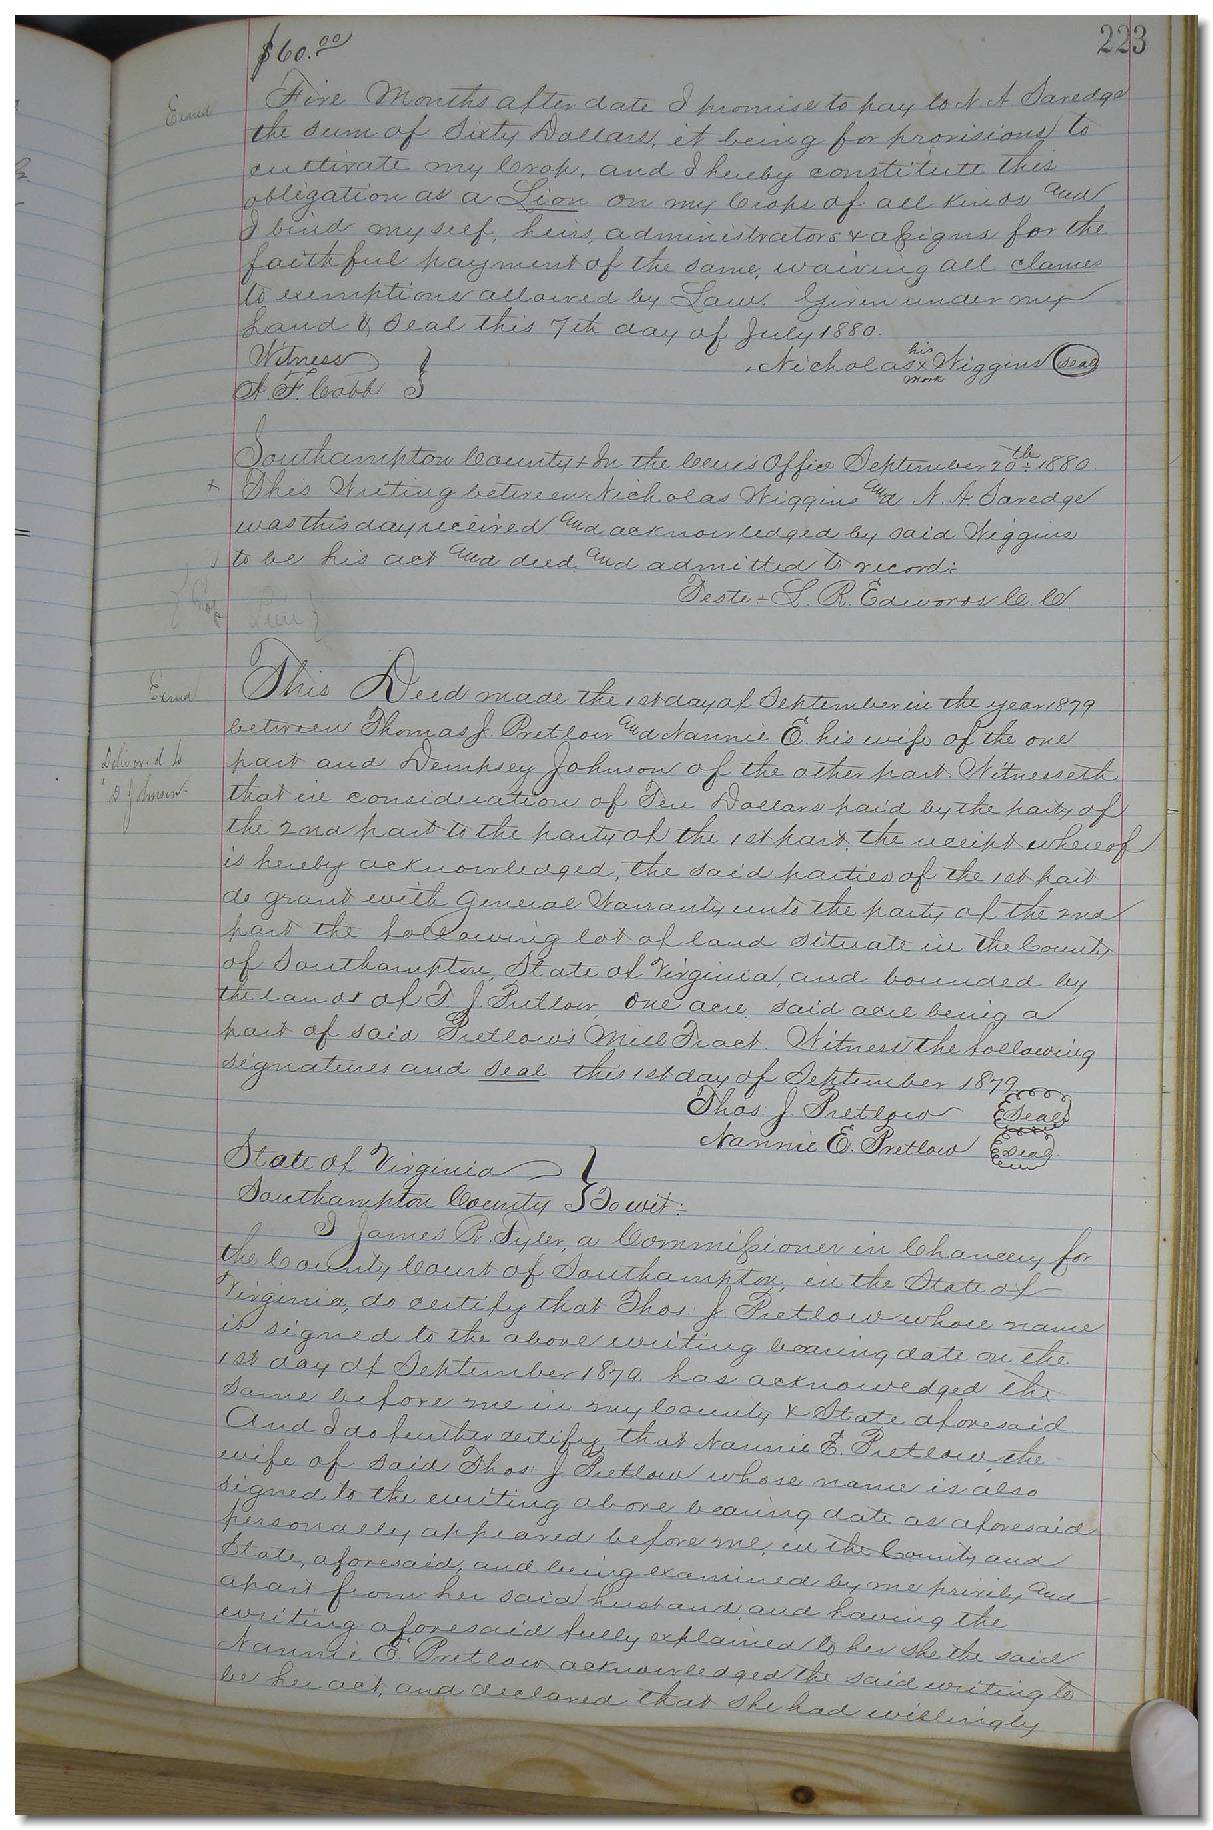 223
$60.00
Exmd
Five Months after date I promise to pay to N. A. Saredge
the sum of Sixty Dollars, it being for provisions to
cultivate my Crop, and I hereby constitute this
obligation as a Lion on my Crops of all kinds and
I bind myself, heirs, administrators & assigns for the
faithful payment of the same, waiving all clames
to exemptions allowed by Law. Given under my
hand & Seal this 7th day of July 1880.
Witness } Nicholas his x mark Wiggins Seal
A. F. Cobb }
Southampton County In the Clerks Office September 20th 1880
+ This Writing between Nicholas Wiggins and N. A. Saredge
was this day received and acknowledged by said Wiggins
to be his act and deed and admitted to record:
Teste - L. R. Edwards C. C
Lein }
Exmd
This Deed made the 1st day of September in the year 1879
between Thomas J. Pretlow and Nannie E. his wife of the one
Delivered to
part and Dempsey Johnson of the other part. Witnesseth
D Johnson
that in consideration of Ten Dollars paid by the party of
the 2nd part to the party of the 1st part, the receipt whereof
is hereby acknowledged, the said parties of the 1st part
do grant with General Warranty unto the party of the 2nd
part the following lot of land situate in the County
of Southampton, State of Virginia, and bounded by
the lands of T. J. Pretlow, One acre, said acre being a
part of said Pretlow's Mill Tract. Witness the following
signatures and seal this 1st day of September 1879
Thos J. Pretlow Seal
Nannie E. Pretlow Seal
State of Virginia }
Southampton County } To wit:
I James R. Tyler, a Commissioner in Chancery for
the County Court of Southampton, in the State of
Virginia, do certify that Thos. J Pretlow whose name
is signed to the above writing bearing date on the
1st day of September 1879 has acknowedged the
same before me in my County & State aforesaid
And I do further certify that Nannie E. Pretlow, the
wife of said Thos J Pretlow whose name is also
signed to the writing above bearing date as aforesaid
personally appeared before me, in the County and
State, aforesaid, and being examined by me privily and
apart from her said husband, and having the
writing aforesaid fully explained to her she the said
Nannie E. Pretlow acknowledged the said writing to
be her act, and declared that she had willingly